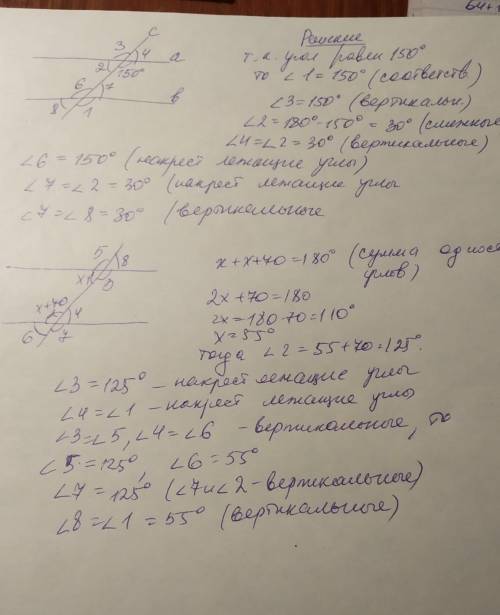 64+
Решение
т.к. угол равен 150°
то ∠1 = 150° (соответств.)
∠3 = 150° (вертикальн.)
∠2 = 180° - 150° = 30° (смежные
∠4 = ∠2 = 30° (вертикальные)
c
3 4 a
2 150°
6 7
8 1 b
∠6 = 150° (накрест лежащие углы)
∠7 = ∠2 = 30° (накрест лежащие углы
∠7 = ∠8 = 30° (вертикальные
5 8
x 3
x+70
4
6 7
x + x + 70 = 180° (сумма одност
углов)
2x + 70 = 180
2x = 180 - 70 = 110°
x = 55°
тогда ∠2 = 55 + 70 = 125°.
∠3 = 125° - накрест лежащие углы
∠4 = ∠1 - накрест лежащие углы
∠3 = ∠5, ∠4 = ∠6 - вертикальные, то
∠5 = 125°, ∠6 = 55°
∠7 = 125° (∠7 и ∠2 - вертикальные)
∠8 = ∠1 = 55° (вертикальные)